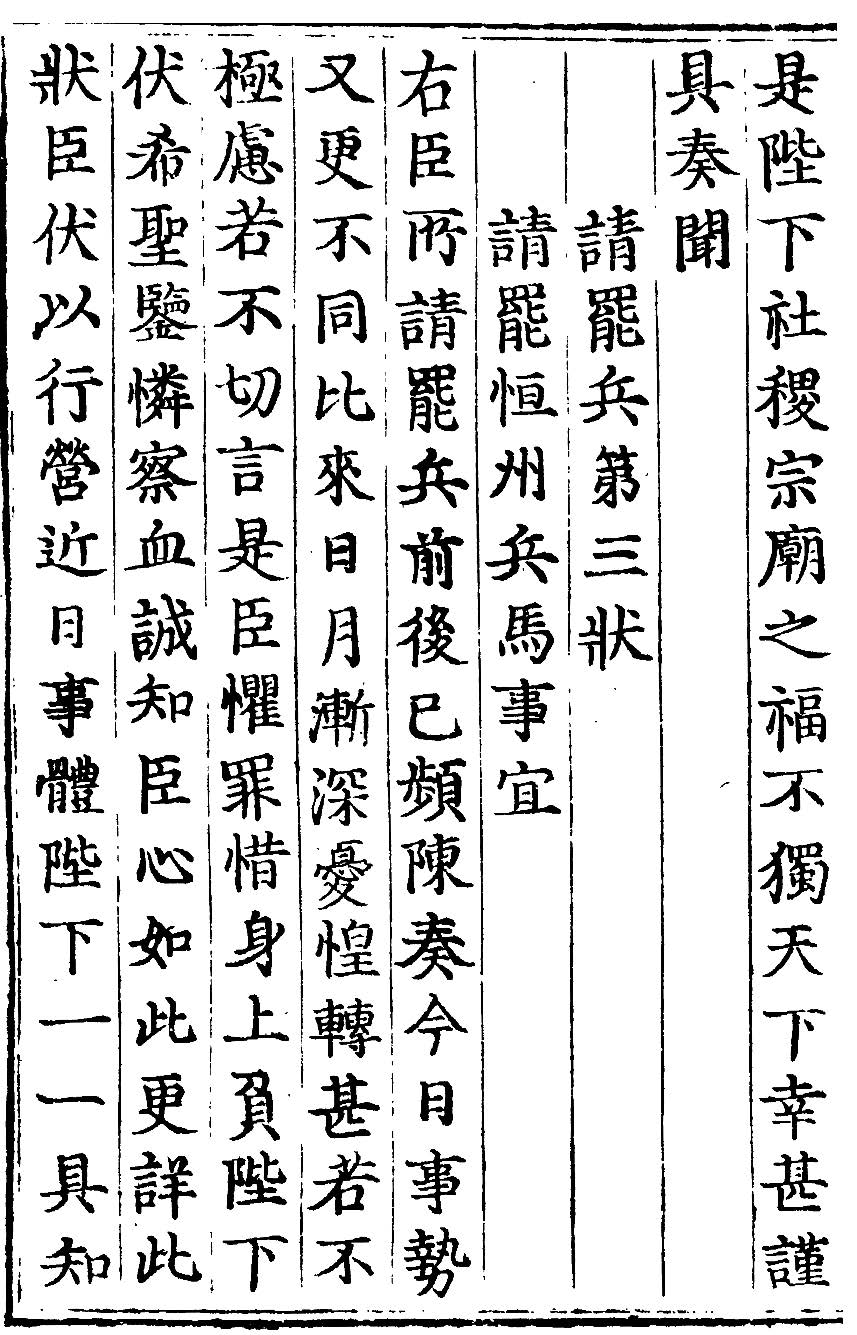 是陛下社稷宗廟之福不獨天下幸甚謹
具奏聞
請罷兵第三狀
請罷恒州兵馬事宜
右臣所請罷兵前後已頻陳奏今日事勢
又更不同比來日月漸深憂惶轉甚若不
極慮若不切言是臣懼罪惜身上負陛下
伏希聖鑒憐察血誠知臣心如此更詳此
狀臣伏以行營近日事體陛下一一具知